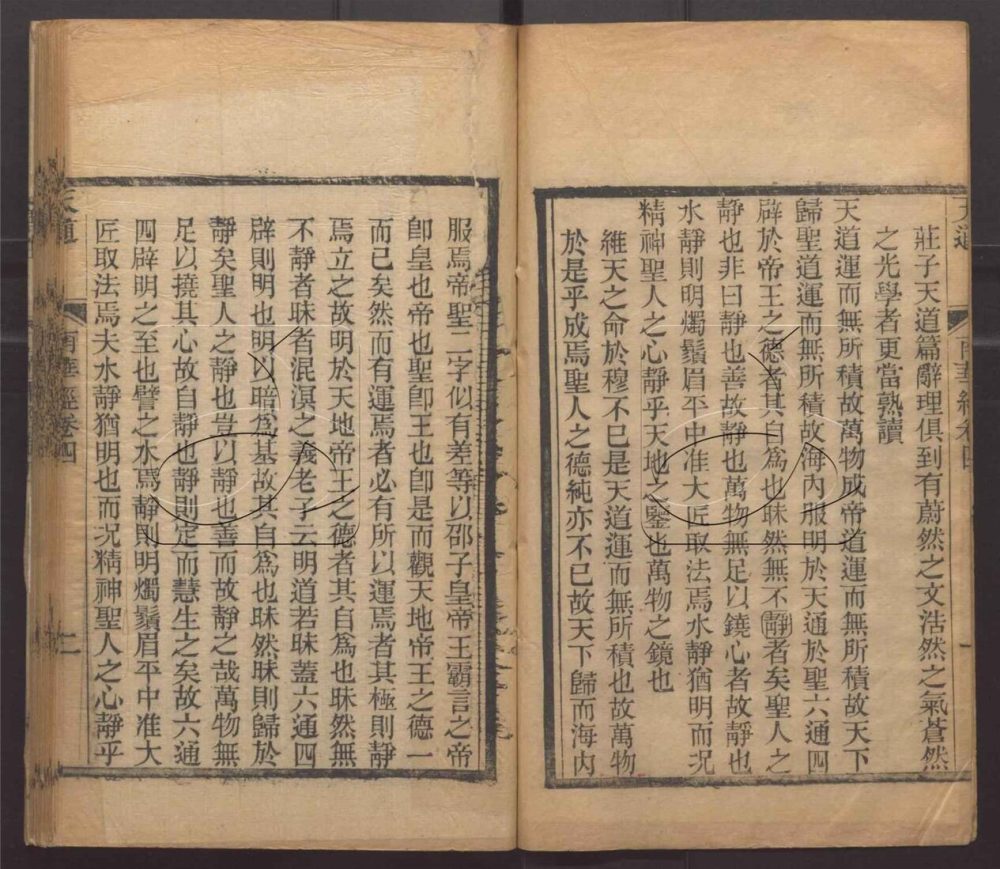 天道
南華經卷四
一
莊子天道篇辭理俱到有蔚然之文浩然之氣蒼然
之光學者更當熟讀
天道運而無所積故萬物成帝道運而無所積故天下
歸聖道運而無所積故海內服明於天通於聖六通四
辟於帝王之德者其自爲也昧然無不靜者矣聖人之
靜也非曰靜也善故靜也萬物無足以鐃心者故靜也
水靜則明燭鬚眉平中准大匠取法焉水靜猶明而况
精神聖人之心靜乎天地之鑒也萬物之鏡也
維天之命於穆不已是天道運而無所積也故萬物
於是乎成焉聖人之德純亦不已故天下歸而海內
服焉帝聖二字似有差等以邵子皇帝王霸言之帝
卽皇也帝也聖卽王也卽是而觀天地帝王之德一
而已矣然而有運焉者必有所以運焉者其極則靜
焉立之故明於天地帝王之德者其自爲也昧然無
不靜者昧者混溟之義老子云明道若昧蓋六通四
辟則明也明以暗爲基故其自爲也昧然昧則歸於
靜矣聖人之靜也豈以靜也善而故靜之哉萬物無
足以撓其心故自靜也靜則定而慧生之矣故六通
四辟明之至也譬之水焉靜則明燭鬚眉平中准大
匠取法焉夫水靜猶明也而况精神聖人之心靜乎
天道
南華經卷四
二